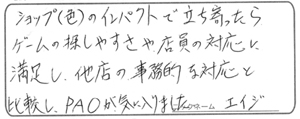 ショップ(色)のインパクトで立ち寄ったら
ゲームの探しやすさや店員の対応に
満足し、他店の事務的な対応と
比較し、PAOが気に入りました。ペンネーム エイジ